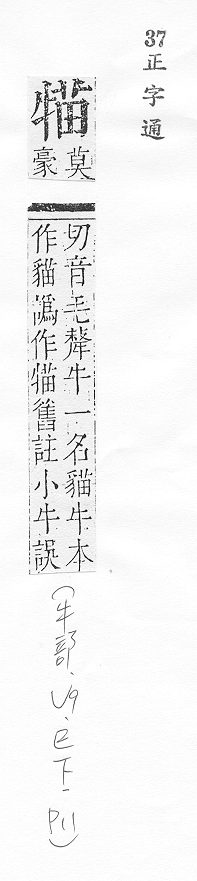 37正字通
⿰牜苗
莫
豪
切音毛犛牛一名貓牛本
作貓譌作⿰牜苗舊註小牛誤
(牛部.V9.巳下.P11)